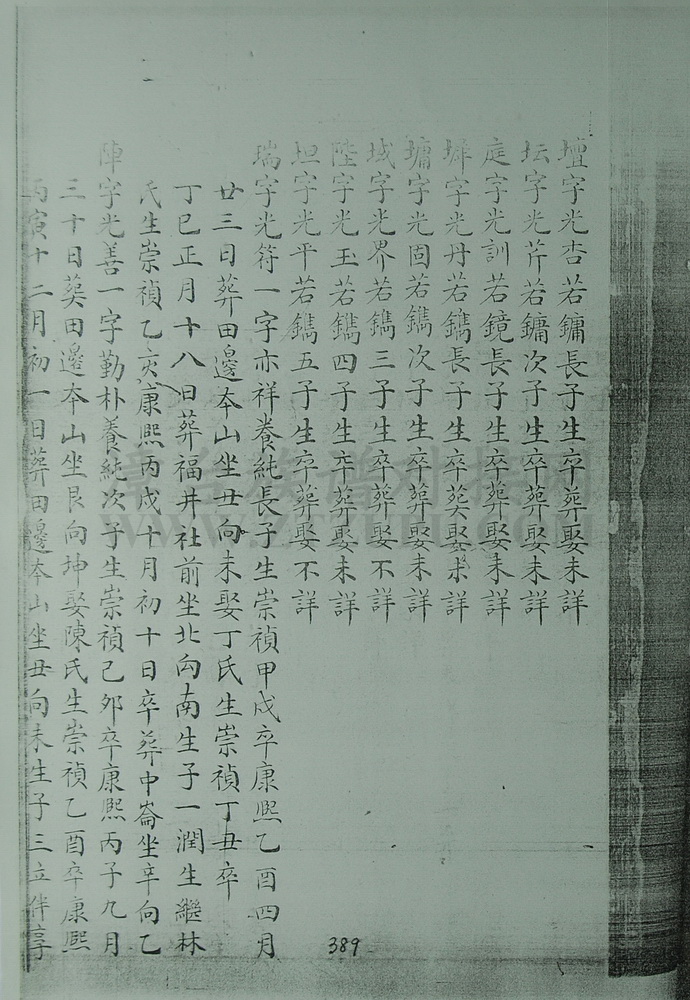 壇字光杏若鏞長子生卒葬娶未詳
坛字光芹若鏞次子生卒葬娶未詳
庭字光訓若鏡長子生卒葬娶未詳
墀字光丹若鐫長子生卒葬娶未詳
墉字光固若鐫次子生卒葬娶未詳
域字光界若鐫三子生卒葬娶不詳
陛字光玉若鐫四子生卒葬娶未詳
坦字光平若鐫五子生卒葬娶不詳
瑞字光符一字亦祥養純長子生崇禎甲戌卒康熙乙酉四月
廿三日葬田邊本山坐丑向未娶丁氏生崇禎丁丑卒
丁巳正月十八日葬福井社前坐北向南生子一潤生繼林
氏生崇禎乙亥康熙丙戌十月初十日卒葬中崙坐辛向乙
陣字光善一字勤朴養純次子生崇禎己卯卒康熙丙子九月
三十日葬田邊本山坐艮向坤娶陳氏生崇禎乙酉卒康熙
丙寅十二月初一日葬田邊本山坐丑向未生子三立伴享
389